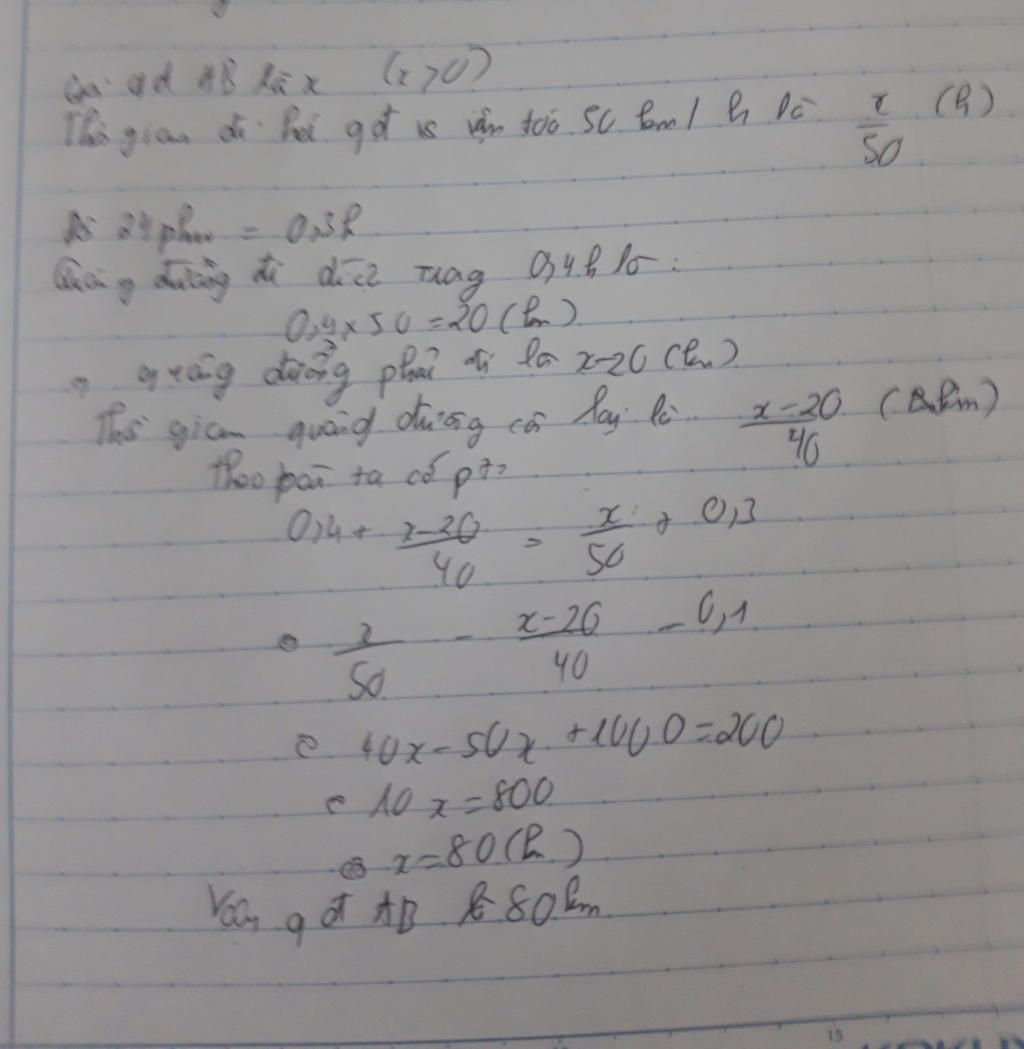 Gọi qđ AB là x (x>0)
Thời gian đi hết qđ vs vận tốc 50 km/h là x/50 (h)
24 phút = 0,3h
Quãng đường đi được trong 0,4h là:
0,4×50=20(km)
quãng đường phải đi là x-20(km)
Thời gian quãng đường còn lại là x-20/40
Theo bài ta có pt:
0,4+ x-20/40 = x/50 + 0,3
x/50 - x-20/40 = 0,1
40x-50x+1000=200
10x=800
x=80
Vậy qđ AB là 80km
15